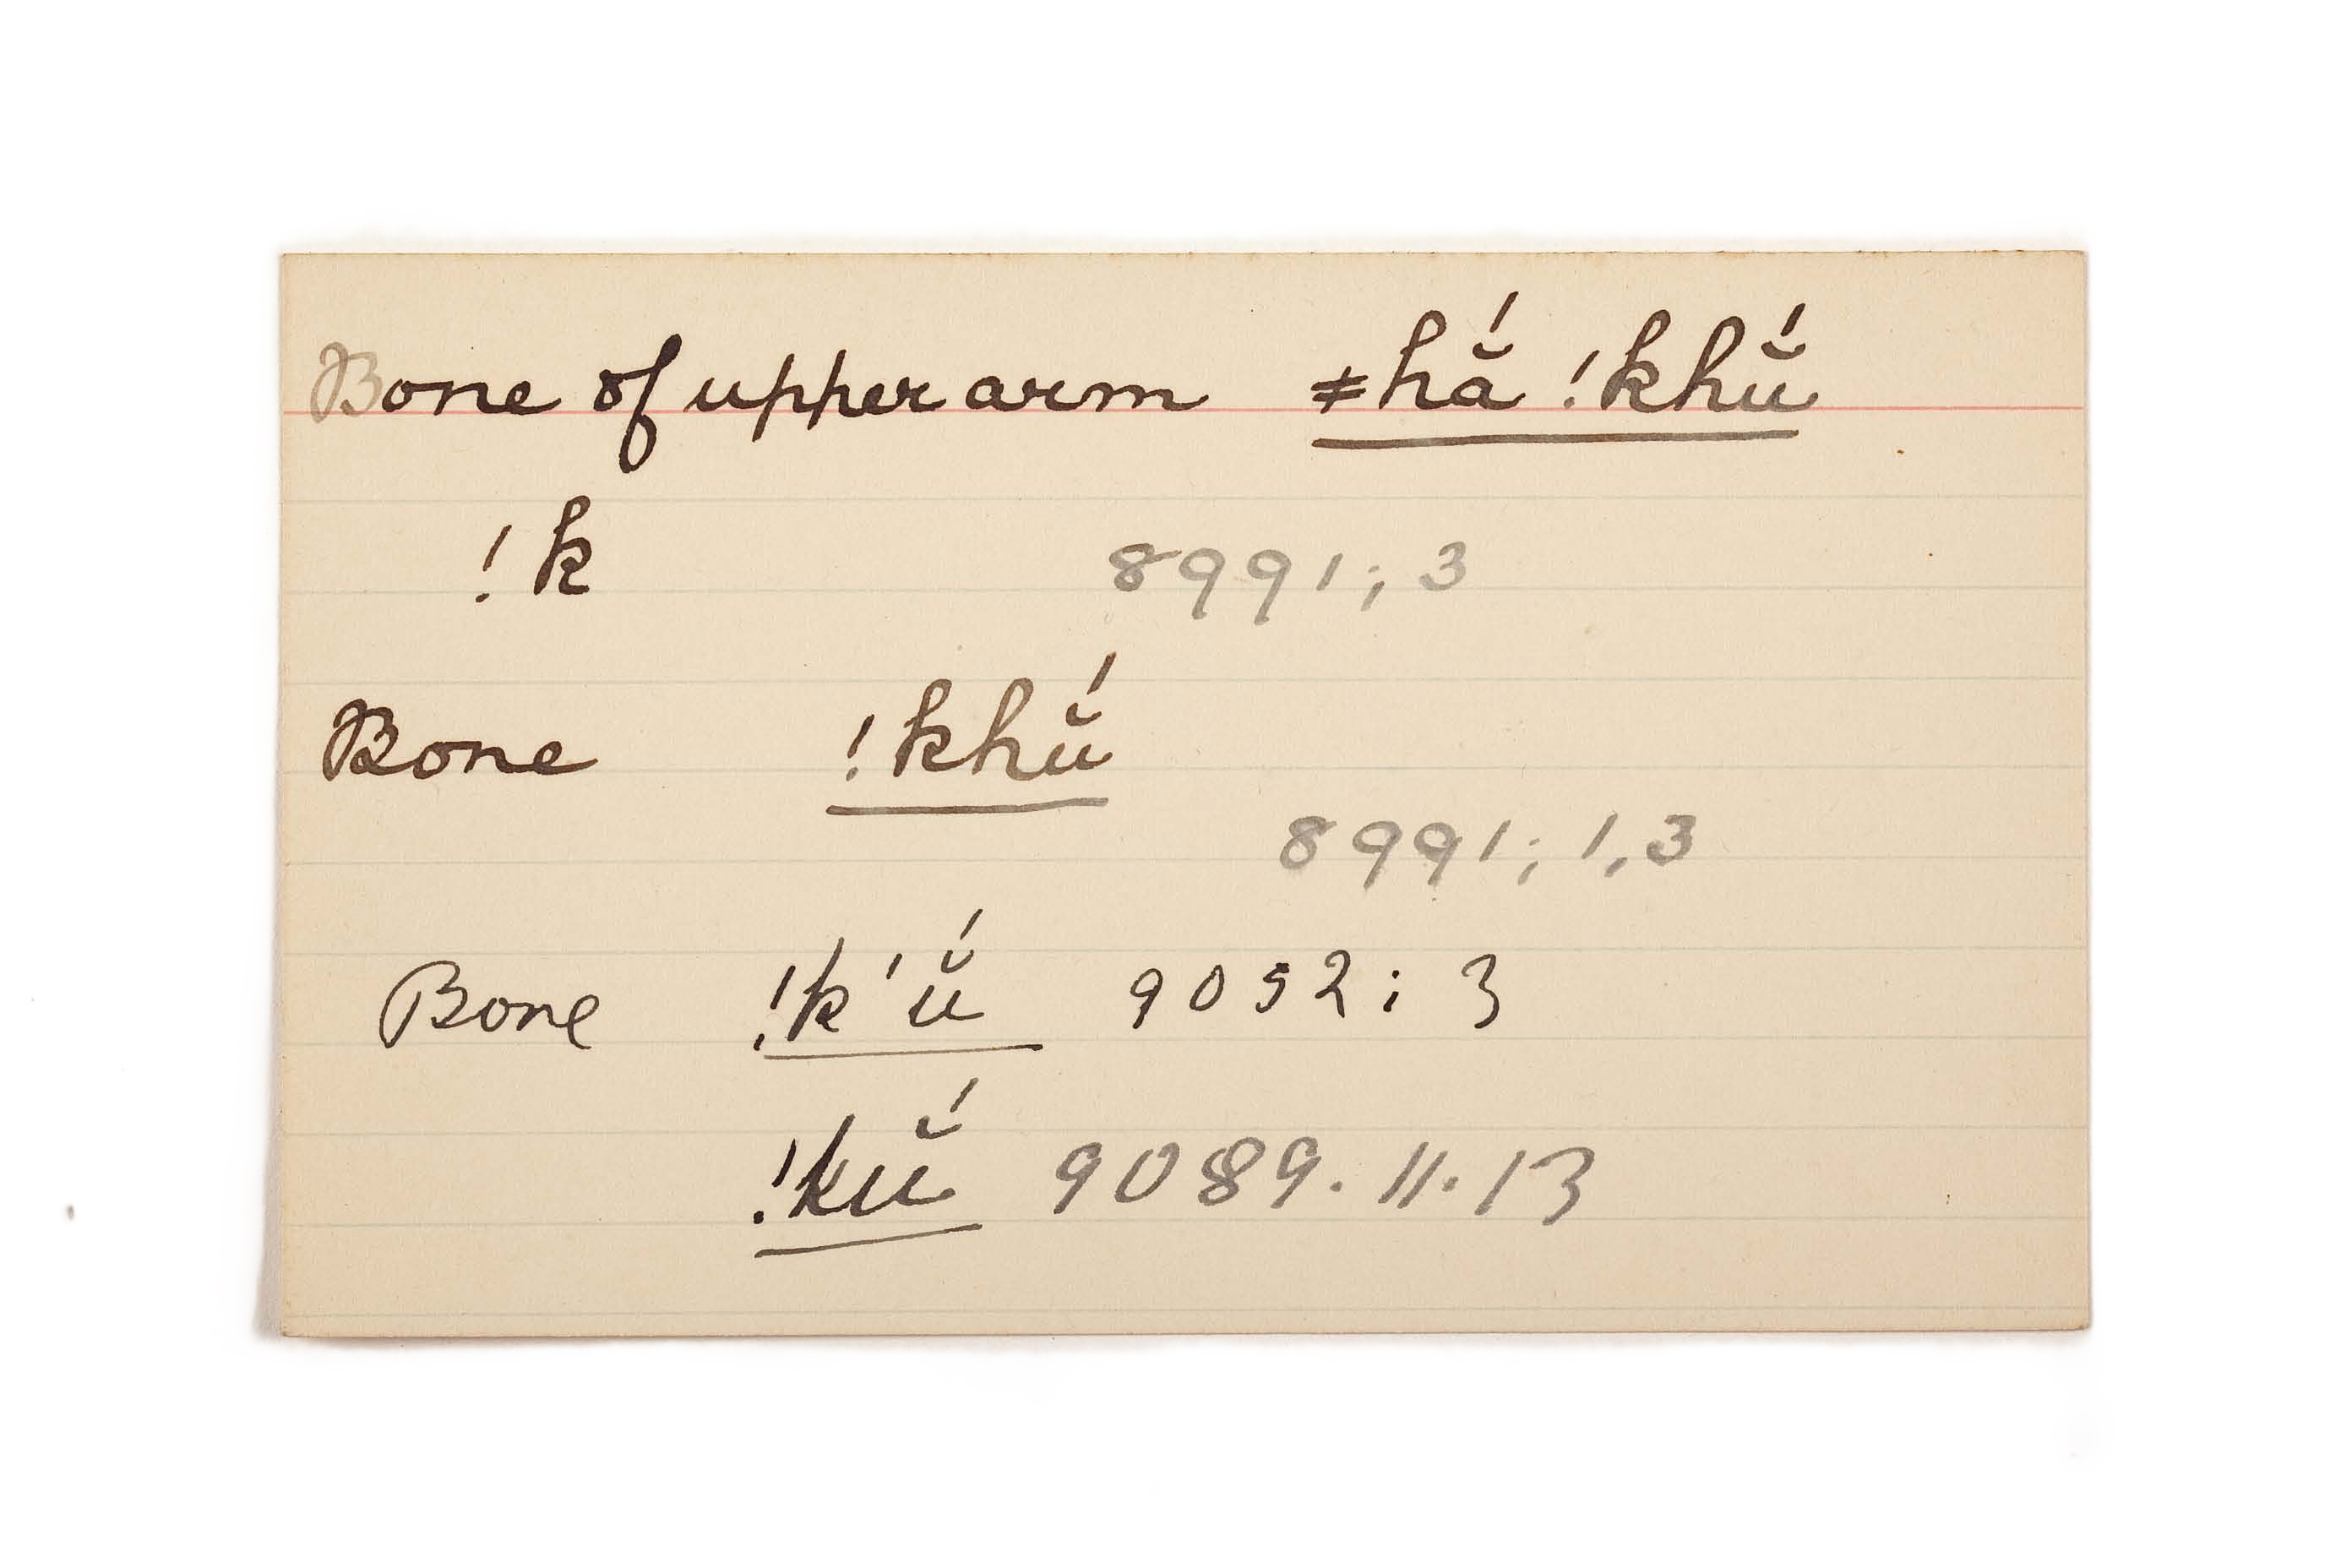 Bone of upper arm ≠hắ !khŭ́
!k 8991; 3
Bone !khŭ́
8991; 1, 3
Bone !k'ŭ́ 9052; 3
!kŭ́ 9089. 11. 13